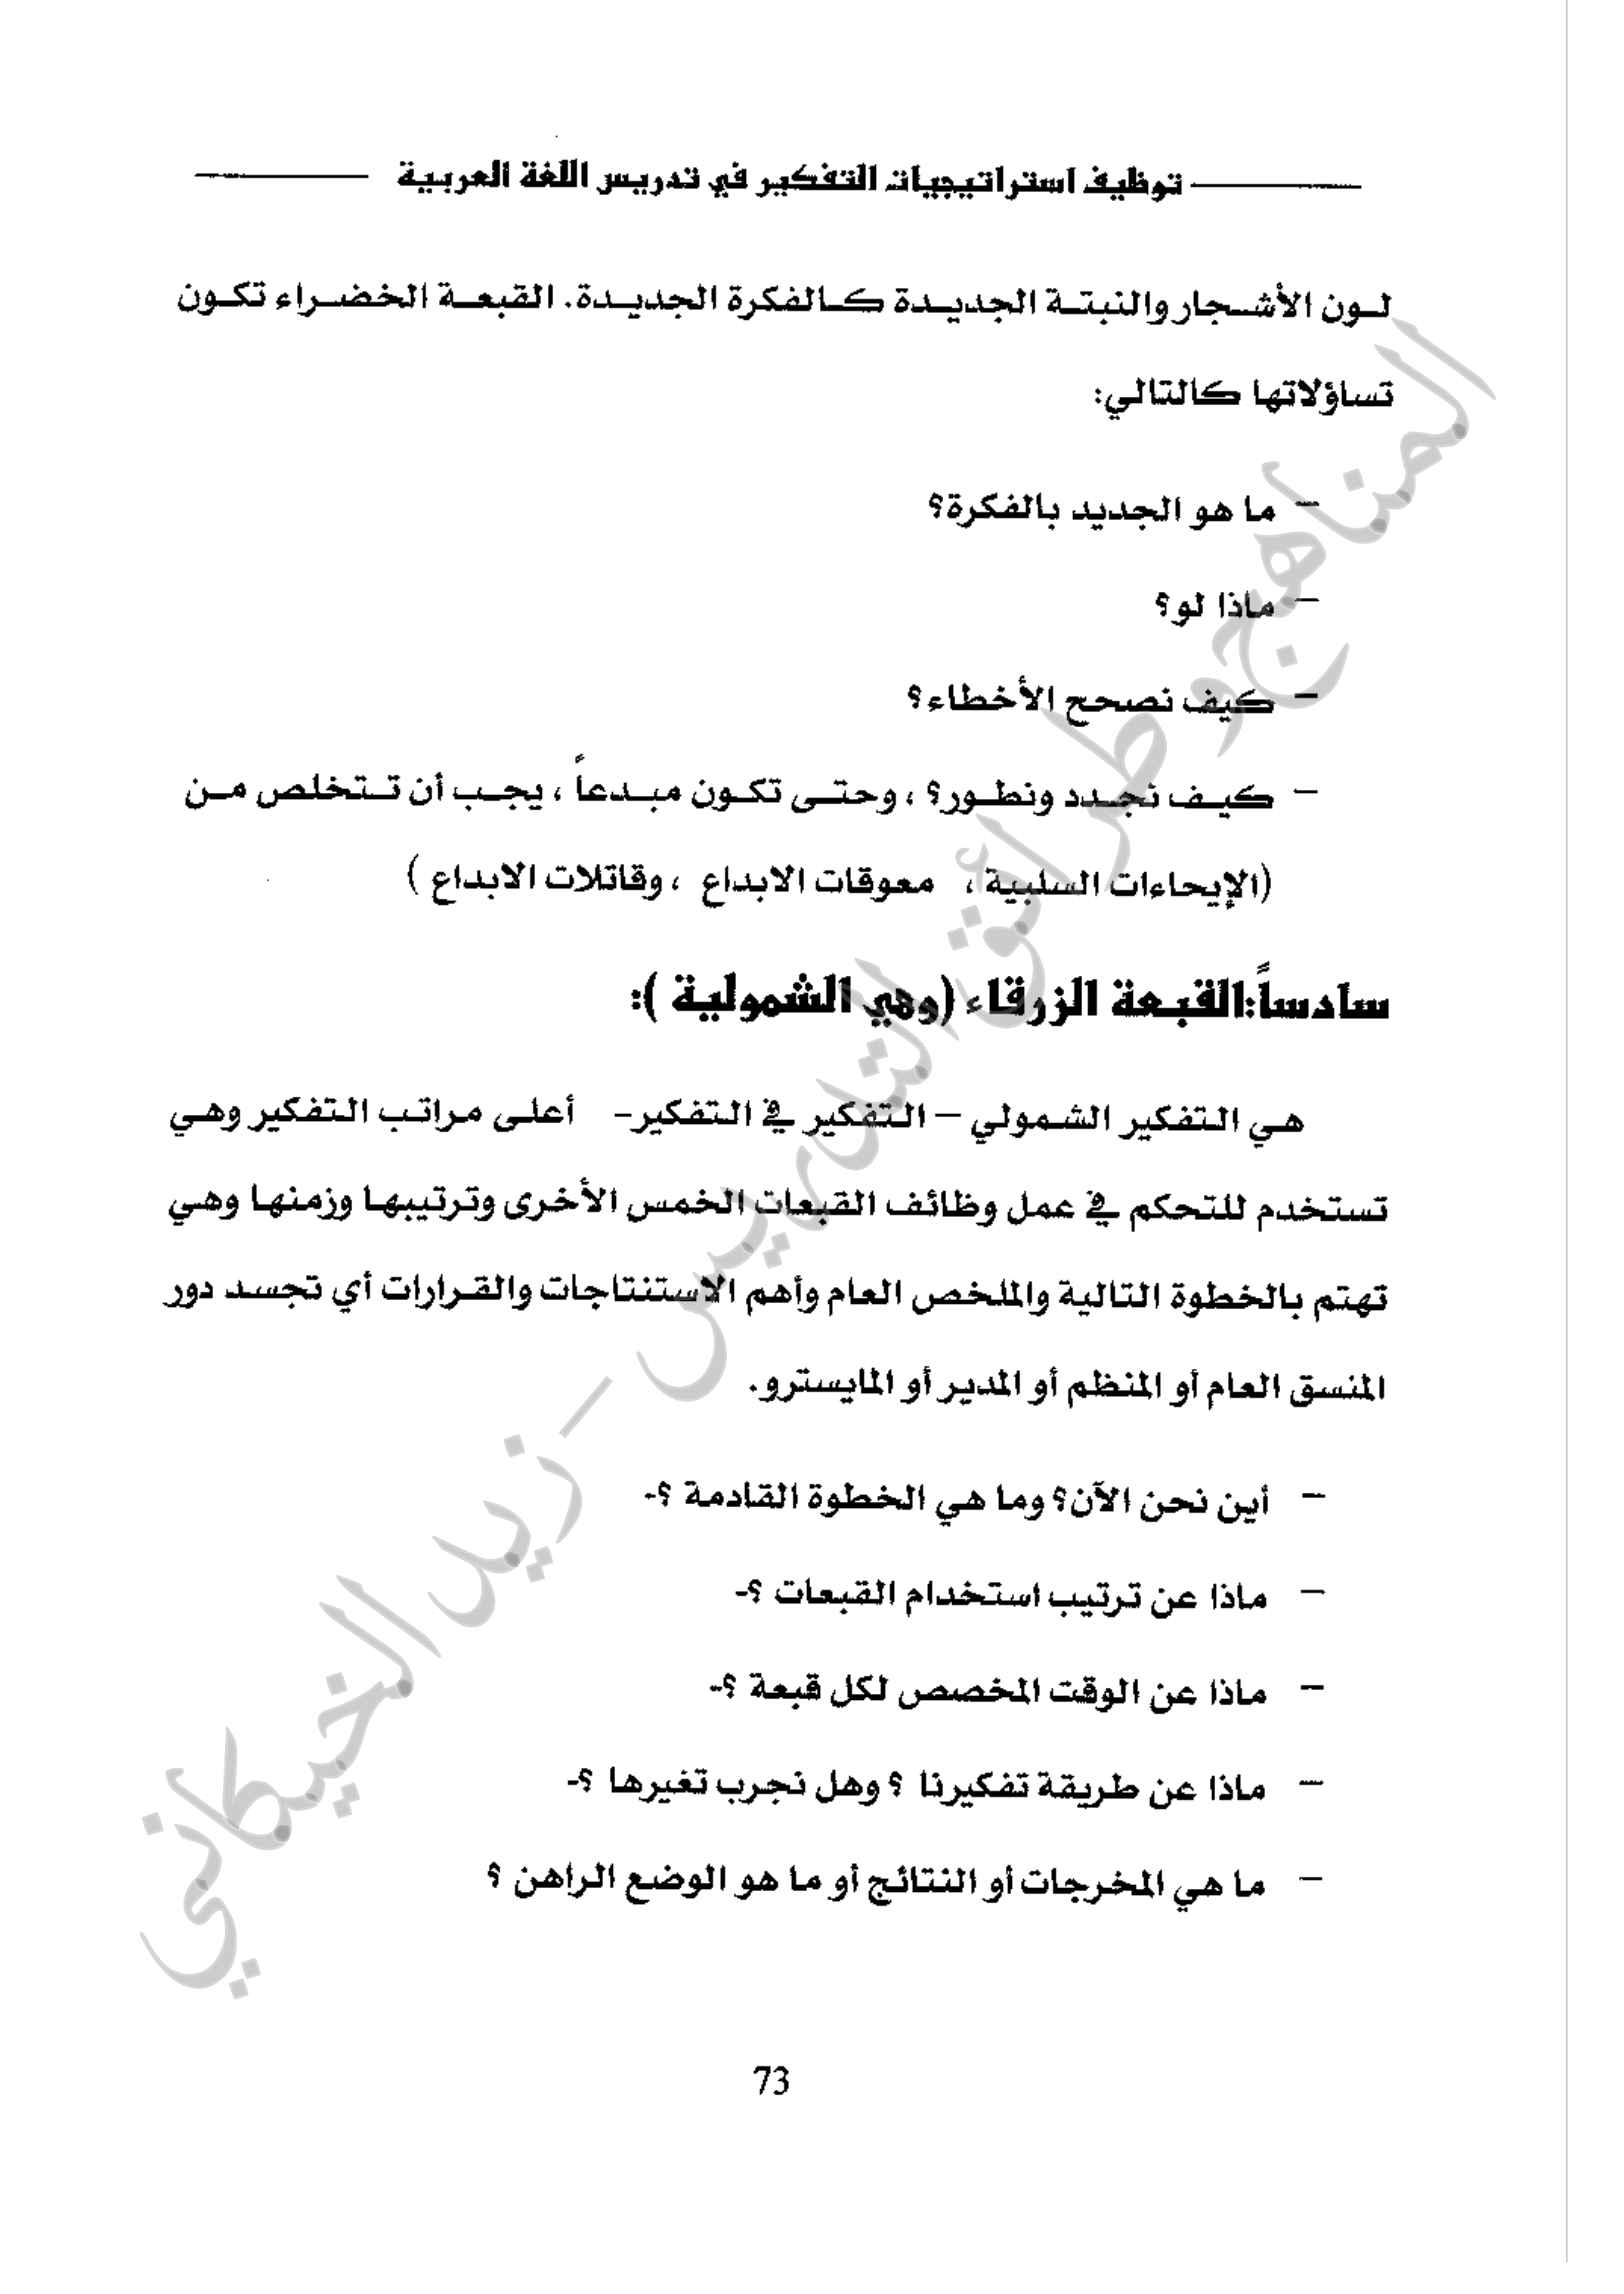 توظيف استراتيجيات التفكير في تدريس اللغة العربية
لون الأشجار والنبتة الجديدة كالفكرة الجديدة. القبعة الخضراء تكون
تساؤلاتها كالتالي:
– ما هو الجديد بالفكرة؟
– ماذا لو؟
– كيف نصحح الأخطاء؟
– كيف نجدد ونطور؟ ، وحتى تكون مبدعاً ، يجب أن تتخلص من
(الإيحاءات السلبية ، معوقات الابداع ، وقاتلات الابداع )
سادساً:القبعة الزرقاء (وهي الشمولية ):
هي التفكير الشمولي – التفكير في التفكير- أعلى مراتب التفكير وهي
تستخدم للتحكم في عمل وظائف القبعات الخمس الأخرى وترتيبها وزمنها وهي
تهتم بالخطوة التالية والملخص العام وأهم الاستنتاجات والقرارات أي تجسد دور
المنسق العام أو المنظم أو المدير أو المايسترو.
– أين نحن الآن؟ وما هي الخطوة القادمة ؟-
– ماذا عن ترتيب استخدام القبعات ؟-
– ماذا عن الوقت المخصص لكل قبعة ؟-
– ماذا عن طريقة تفكيرنا ؟ وهل نجرب تغيرها ؟-
– ما هي المخرجات أو النتائج أو ما هو الوضع الراهن ؟
73
المناهج وطرائق التدريس - زيد الخيكاني